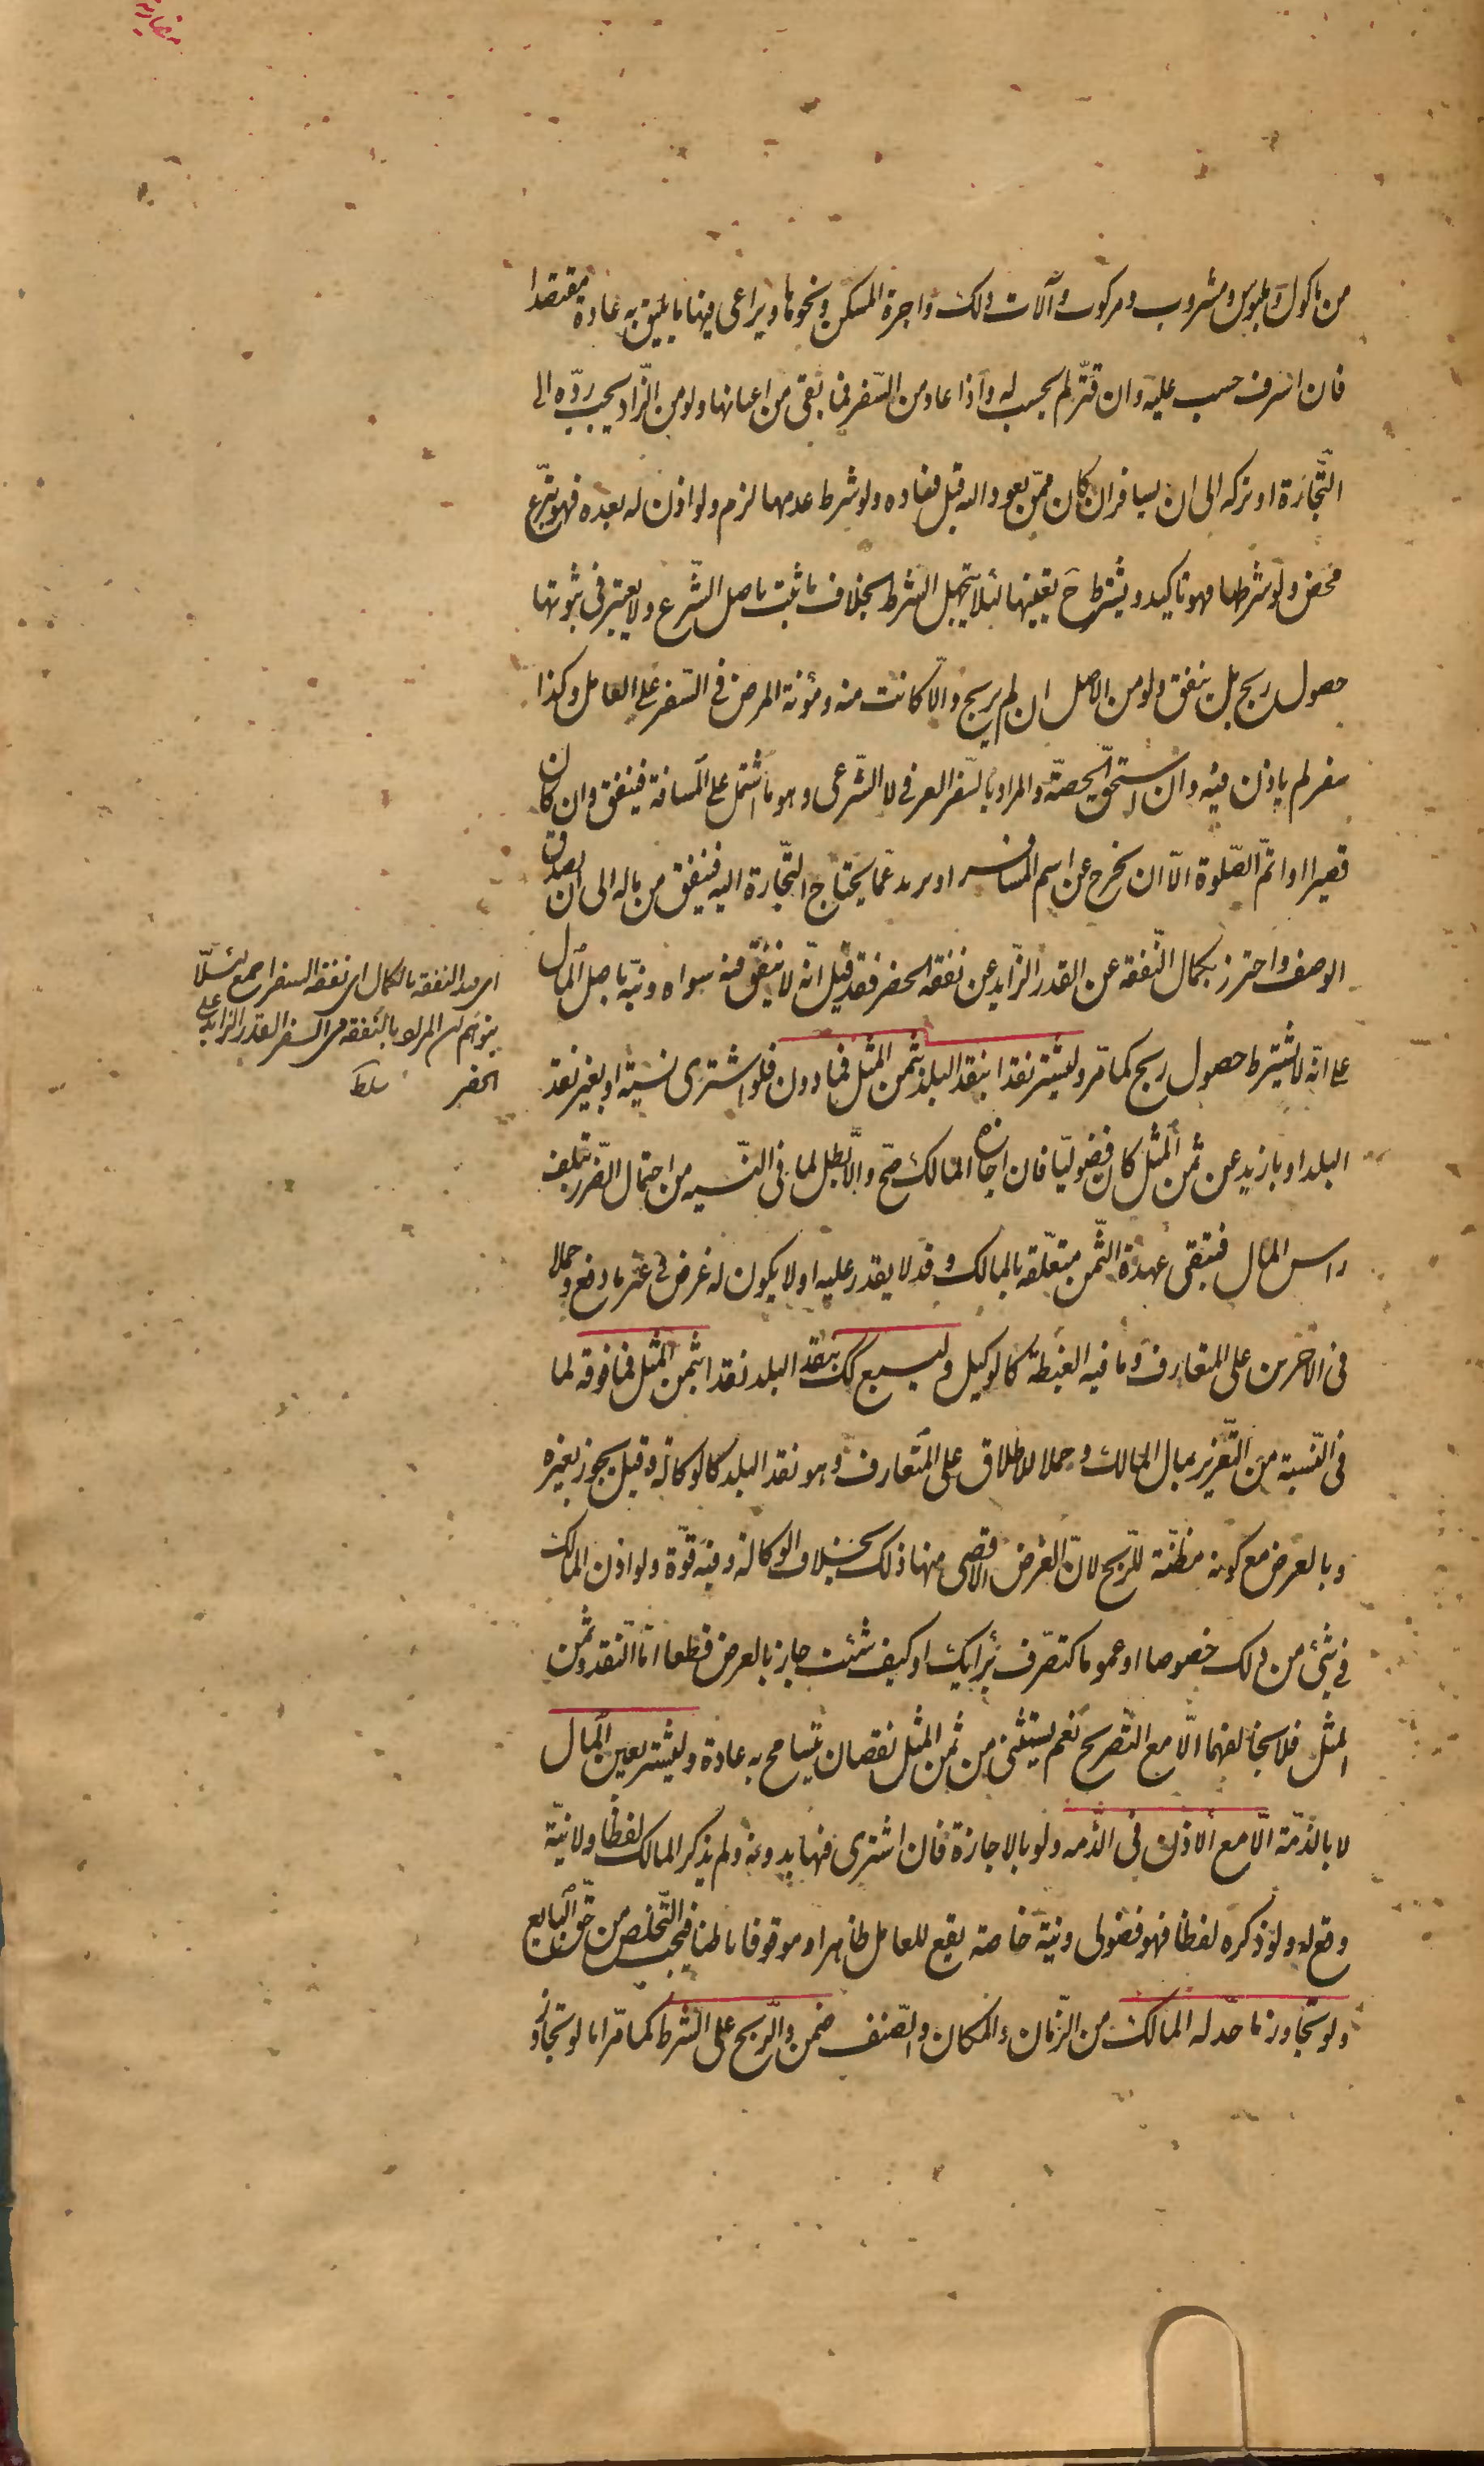 مضاربه
من مأكول وملبوس ومشروب ومركوب وآلات ذلك واجرة المسكن ونحوها ويراعى فيها ما يليق به عادة مقتصدا
فان اسرف حسب عليه وان قتّر لم يحسب له واذا عاد من السّفر فما بقى من اعيانها ولو من الزّاد يجب ردّه الى
التّجارة او تركه الى ان يسافر ان كان ممّن يعود اليه قبل فساده ولو شرط عدمها لزم ولو اذن له بعده فهو تبرّع
محض ولو شرطها فهو تاكيد ويشترط ح تعيينها لئلا يتجهل الشرط بخلاف ما ثبت باصل الشّرع ولا يعتبر فى ثبوتها
حصول ربح بل ينفق ولو من الاصل ان لم يربح والّا كانت منه ومؤنة المرض فى السّفر على العامل وكذا
سفر لم ياذن فيه وان استحقّ الحصّة والمراد بالسّفر العرفى لا الشّرعى وهو ما اشتمل على المسافة فينفق وان كان
قصيرا او اتمّ الصّلوة الّا ان يخرج عن اسم المسافر او يزيد عمّا يحتاج التّجارة اليه فينفق من ماله الى ان يصدق
الوصف واحترز بكمال النّفقة عن القدر الزّايد عن نفقة الحضر فقد قيل انّه لا ينفق فيه سواه ونبّه باصل المال
على انّه لا يشترط حصول ربح كما مرّ وليشتر نقدا بنقد البلد بثمن المثل فما دون فلو اشترى نسية او بغير نقد
البلد او بازيد عن ثمن المثل كان فضوليّا فان اجازه المالك صحّ والّا بطل لما فى النّسيه من احتمال الضّرر بتلف
راس المال فتبقى عهدة الثّمن متعلّقة بالمالك وقد لا يقدر عليه او لا يكون له غرض فى غير ما دفع وحملا
فى الاخيرين على المتعارف وما فيه الغبطة كالوكيل وليبع كك بنقد البلد نقدا بثمن المثل فما فوقه لما
فى النّسية من التّغرير بمال المالك وحملا للاطلاق على المتعارف وهو نقد البلد كالوكالة وقيل يجوز بغيره
وبالعرض مع كونه مظنّة للرّبح لانّ الغرض الاقصى منها ذلك بخلاف الوكالة وفيه قوّة ولو اذن المالك
فى شئ من ذلك خصوصا او عموما كتصرّف برأيك او كيف شئت جاز بالعرض قطعا امّا النقد وثمن
المثل فلا يخالفهما الّا مع التّصريح نعم يستثنى من ثمن المثل نقصان يتسامح به عادة وليشتر بعين المال
لا بالذمّة الّا مع الاذن فى الذّمه ولو بالاجازة فان اشترى فيها بدونه ولم يذكر المالك لفظا ولا نيّة
وقع له ولو ذكره لفظا فهو فضولى ونيّة خاصة يقع للعامل ظاهرا وموقوفا باطنا فيجب التّخلّص من حقّ البايع
ولو تجاوز ما حدّ له المالك من الزّمان والمكان والصّنف ضمن والرّبح على الشّرط كما مرّ اما لو تجاوز
اى هذه النفقة بالكمال اى نفقه السفر اجمع لئلّا
يتوهّم ان المراد بالنّفقه فى السفر القدر الزايد على
الحضر سلط